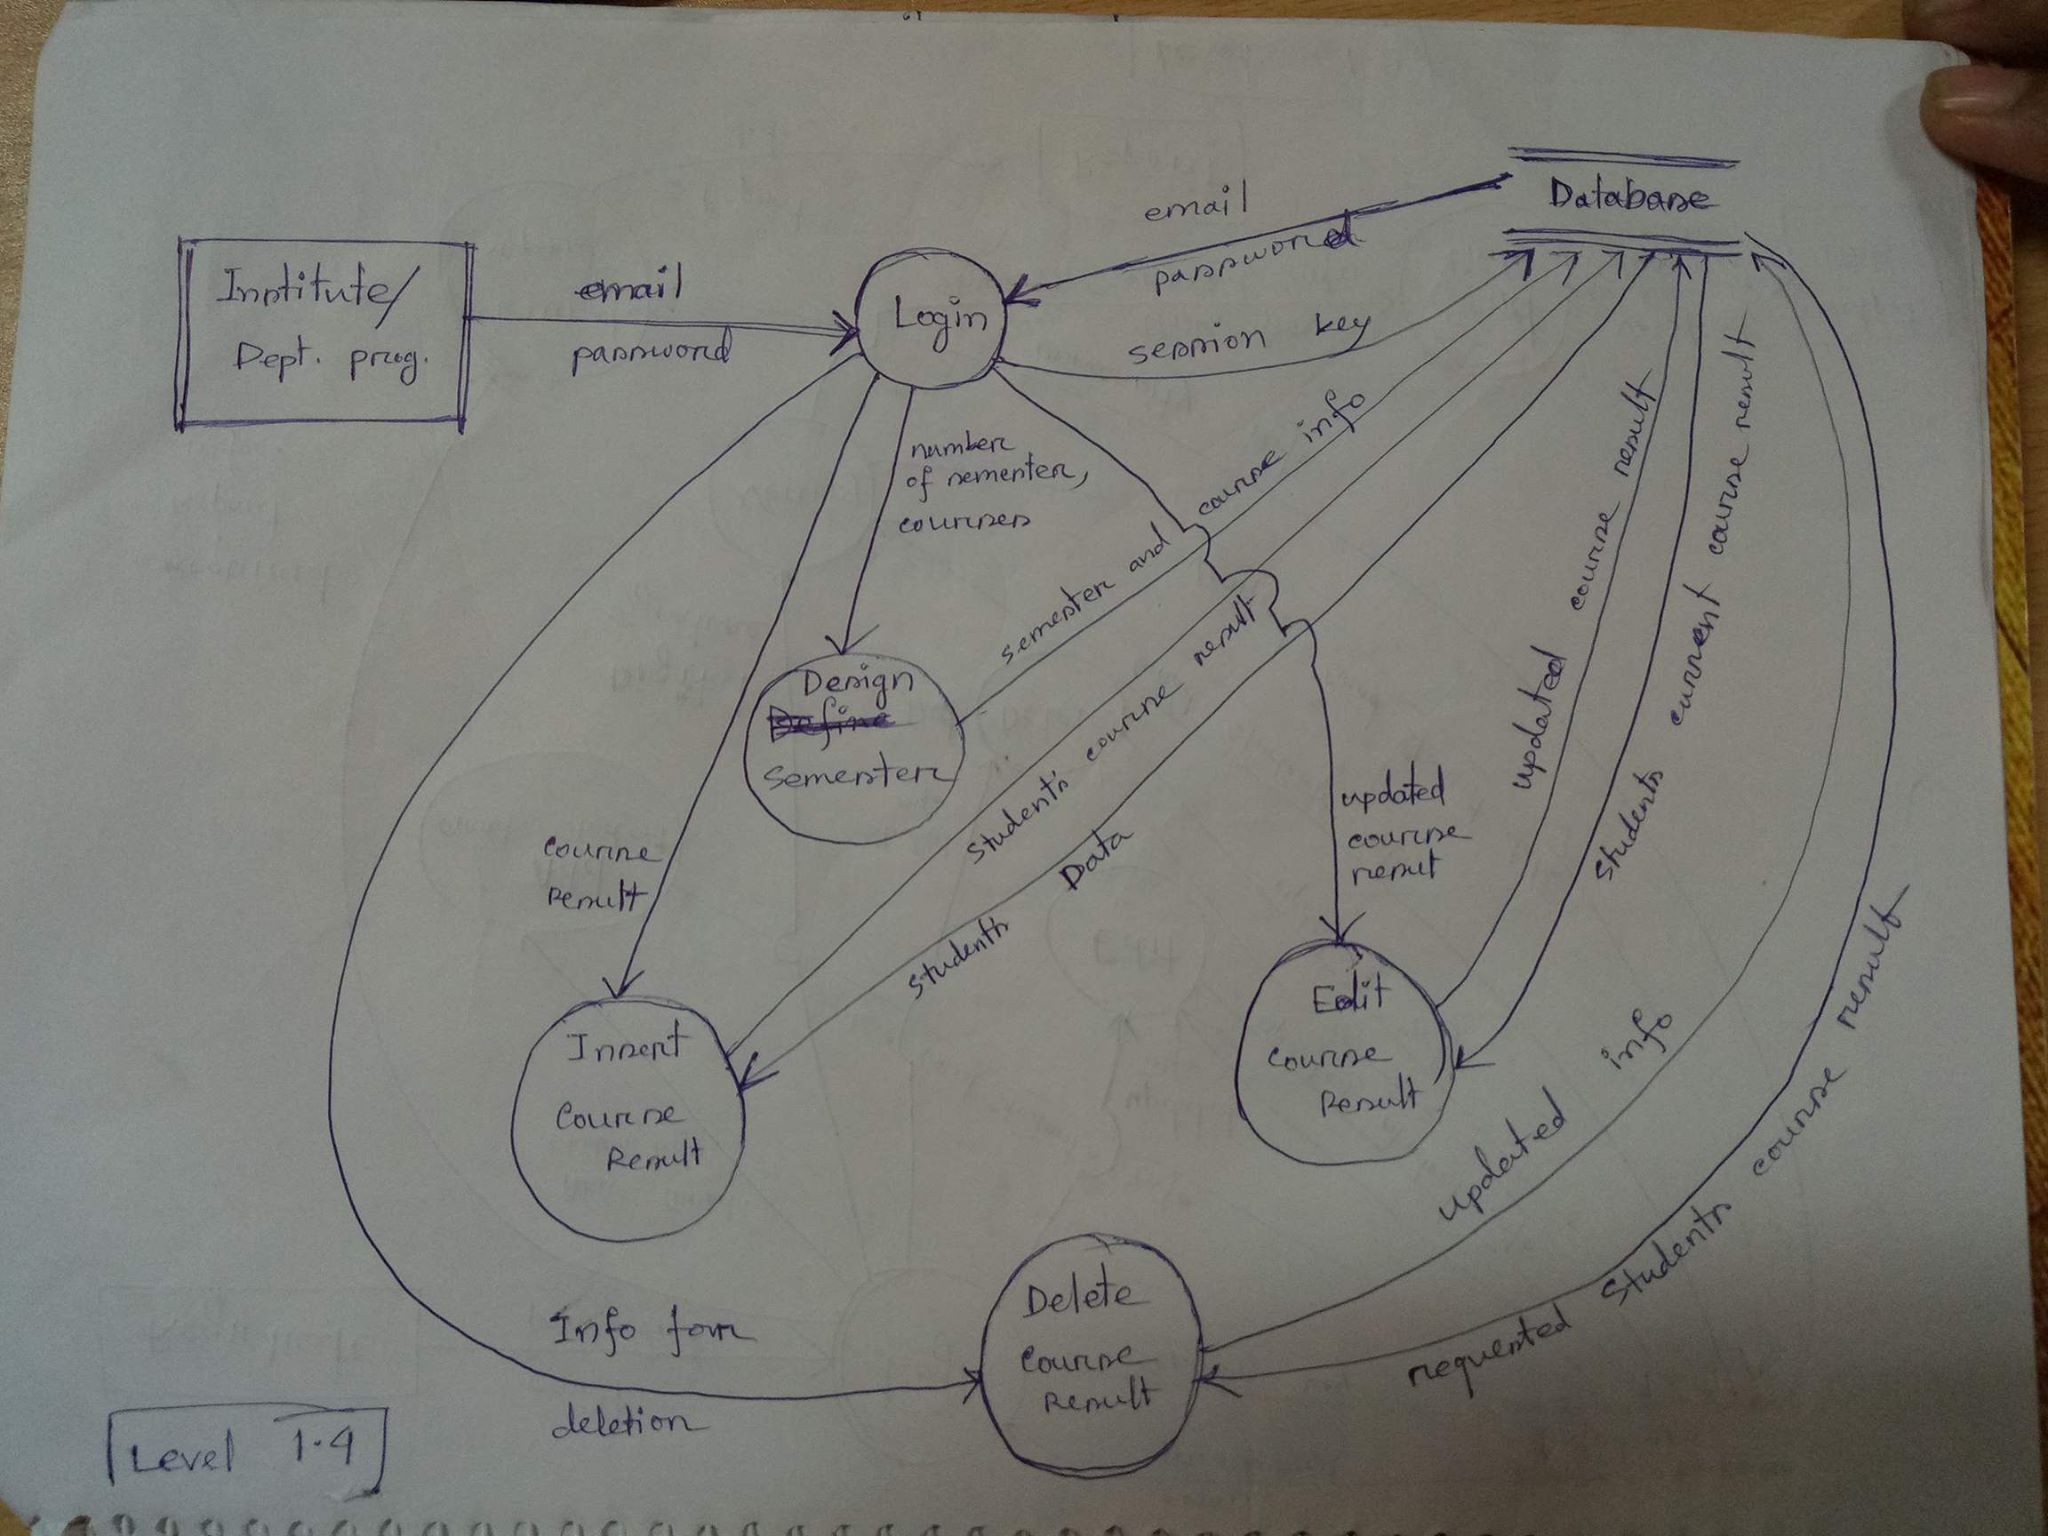 Database
email
password
Institute/
Dept. prog.
email
password
Login
session key
number
of semester,
courses
semester and course info
Design
Define
Semester
Student's course result
Students Data
updated
course
result
updated course result
Students current course result
course
Result
Insert
Course
Result
Edit
Course
Result
updated info
requested Students course result
Delete
Course
Result
Info for
deletion
Level 1.4